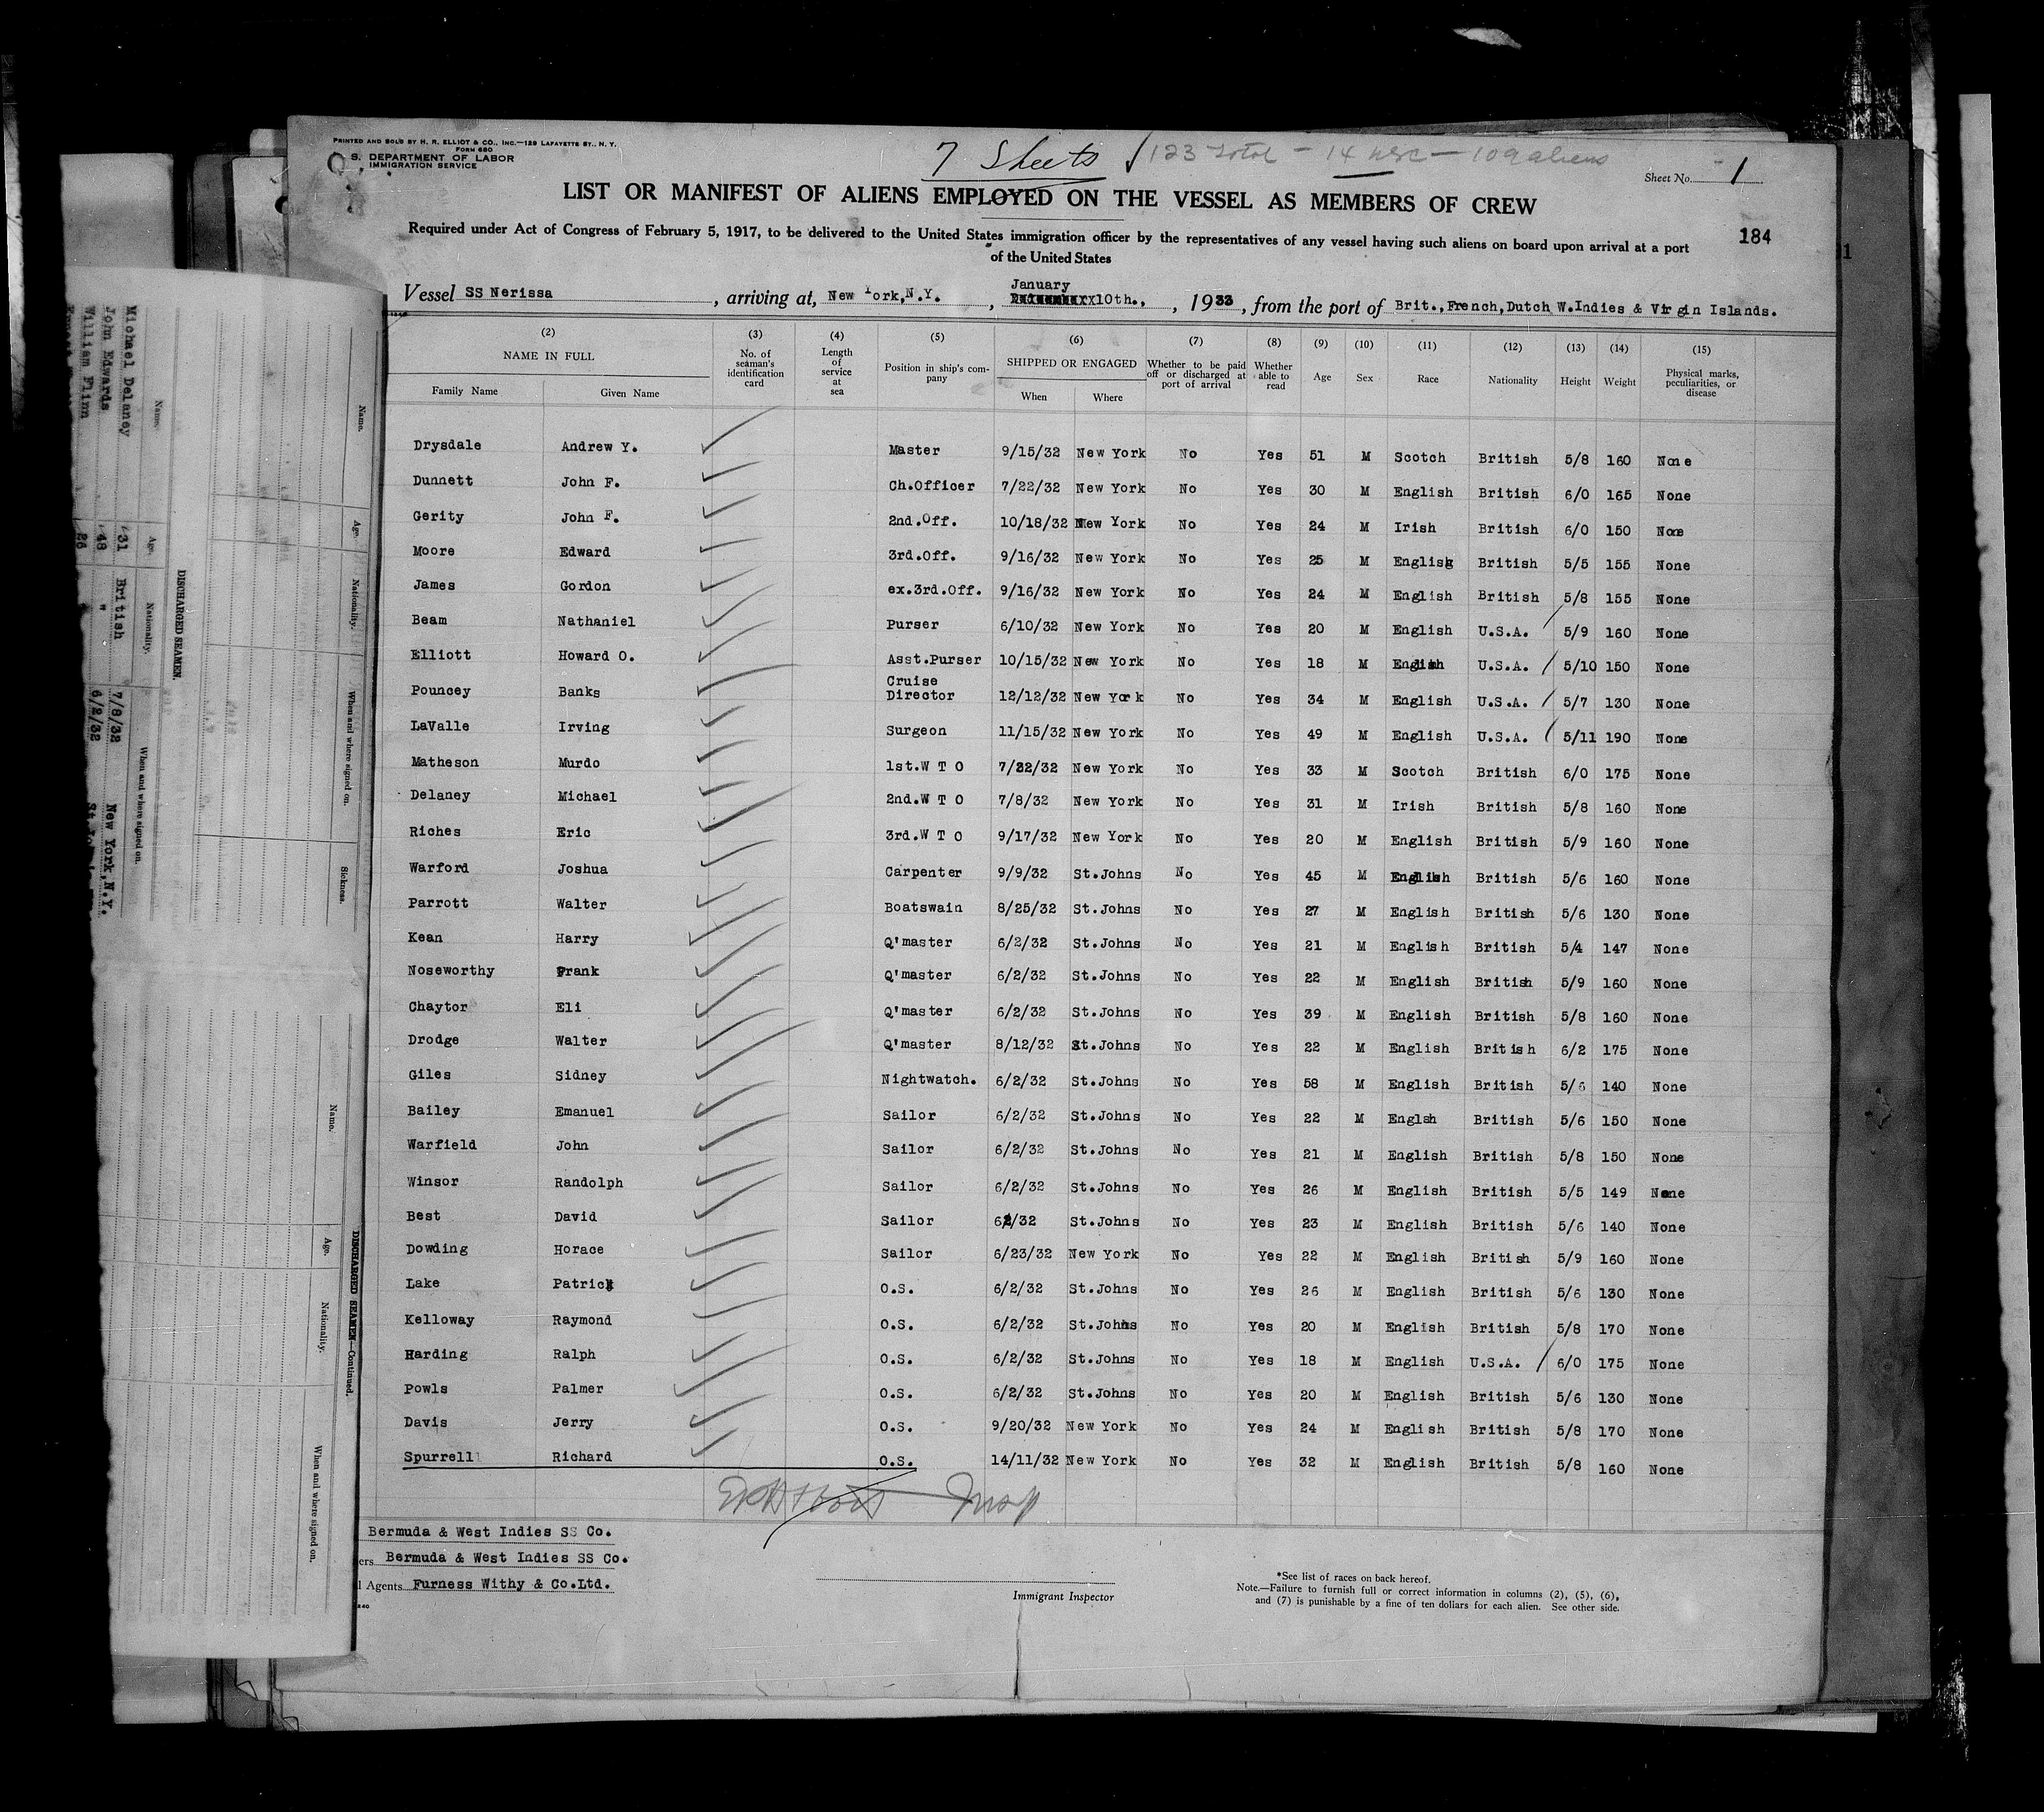 PRINTED AND SOLD BY H. R. ELLIOT & CO., INC.—129 LAFAYETTE ST., N. Y.
FORM 680
S. DEPARTMENT OF LABOR
IMMIGRATION SERVICE
7 Sheets 123 total - 14 - 109 aliens
Sheet No. 1
LIST OR MANIFEST OF ALIENS EMPLOYED ON THE VESSEL AS MEMBERS OF CREW
184
Required under Act of Congress of February 5, 1917, to be delivered to the United States immigration officer by the representatives of any vessel having such aliens on board upon arrival at a port
of the United States
January
Vessel SS Nerissa, arriving at, New York,N.Y., 10th., 1933, from the port of Brit.,French,Dutch W.Indies & Virgin Islands.
(2) (3) (4) (5) (6) (7) (8) (9) (10) (11) (12) (13) (14) (15)
NAME IN FULL No. of seaman's identification card Length of service at sea Position in ship's company SHIPPED OR ENGAGED Whether to be paid off or discharged at port of arrival Whether able to read Age Sex Race Nationality Height Weight Physical marks, peculiarities, or disease
Family Name Given Name When Where
Drysdale Andrew Y. Master 9/15/32 New York No Yes 51 M Scotch British 5/8 160 None
Dunnett John F. Ch.Officer 7/22/32 New York No Yes 30 M English British 6/0 165 None
Gerity John F. 2nd.Off. 10/18/32 New York No Yes 24 M Irish British 6/0 150 None
Moore Edward 3rd.Off. 9/16/32 New York No Yes 25 M English British 5/5 155 None
James Gordon ex.3rd.Off. 9/16/32 New York No Yes 24 M English British 5/8 155 None
Beam Nathaniel Purser 6/10/32 New York No Yes 20 M English U.S.A. 5/9 160 None
Elliott Howard O. Asst.Purser 10/15/32 New York No Yes 18 M English U.S.A. 5/10 150 None
Pouncey Banks Cruise Director 12/12/32 New York No Yes 34 M English U.S.A. 5/7 130 None
LaValle Irving Surgeon 11/15/32 New York No Yes 49 M English U.S.A. 5/11 190 None
Matheson Murdo 1st.W T O 7/22/32 New York No Yes 33 M Scotch British 6/0 175 None
Delaney Michael 2nd.W T O 7/8/32 New York No Yes 31 M Irish British 5/8 160 None
Riches Eric 3rd.W T O 9/17/32 New York No Yes 20 M English British 5/9 160 None
Warford Joshua Carpenter 9/9/32 St.Johns No Yes 45 M English British 5/6 160 None
Parrott Walter Boatswain 8/25/32 St.Johns No Yes 27 M English British 5/6 130 None
Kean Harry Q'master 6/2/32 St.Johns No Yes 21 M English British 5/4 147 None
Noseworthy Frank Q'master 6/2/32 St.Johns No Yes 22 M English British 5/9 160 None
Chaytor Eli Q'master 6/2/32 St.Johns No Yes 39 M English British 5/8 160 None
Drodge Walter Q'master 8/12/32 St.Johns No Yes 22 M English British 6/2 175 None
Giles Sidney Nightwatch. 6/2/32 St.Johns No Yes 58 M English British 5/6 140 None
Bailey Emanuel Sailor 6/2/32 St.Johns No Yes 22 M Englsh British 5/6 150 None
Warfield John Sailor 6/2/32 St.Johns No Yes 21 M English British 5/8 150 None
Winsor Randolph Sailor 6/2/32 St.Johns No Yes 26 M English British 5/5 149 None
Best David Sailor 62/32 St.Johns No Yes 23 M English British 5/6 140 None
Dowding Horace Sailor 6/23/32 New York No Yes 22 M English British 5/9 160 None
Lake Patrick O.S. 6/2/32 St.Johns No Yes 26 M English British 5/6 130 None
Kelloway Raymond O.S. 6/2/32 St.Johns No Yes 20 M English British 5/8 170 None
Harding Ralph O.S. 6/2/32 St.Johns No Yes 18 M English U.S.A. 6/0 175 None
Powls Palmer O.S. 6/2/32 St.Johns No Yes 20 M English British 5/6 130 None
Davis Jerry O.S. 9/20/32 New York No Yes 24 M English British 5/8 170 None
Spurrell Richard O.S. 14/11/32 New York No Yes 32 M English British 5/8 160 None
Insp
Bermuda & West Indies SS Co.
ers Bermuda & West Indies SS Co.
l Agents Furness Withy & Co.Ltd.
Immigrant Inspector
*See list of races on back hereof.
Note.—Failure to furnish full or correct information in columns (2), (5), (6),
and (7) is punishable by a fine of ten dollars for each alien. See other side.
DISCHARGED SEAMEN.
Name. Age. Nationality. When and where signed on. Sickness.
Michael Delaney 31 British 7/8/32 New York,N.Y.
John Edwards 48 " 6/2/32
William Flinn 26
DISCHARGED SEAMEN—Continued.
Name. Age. Nationality. When and where signed on.